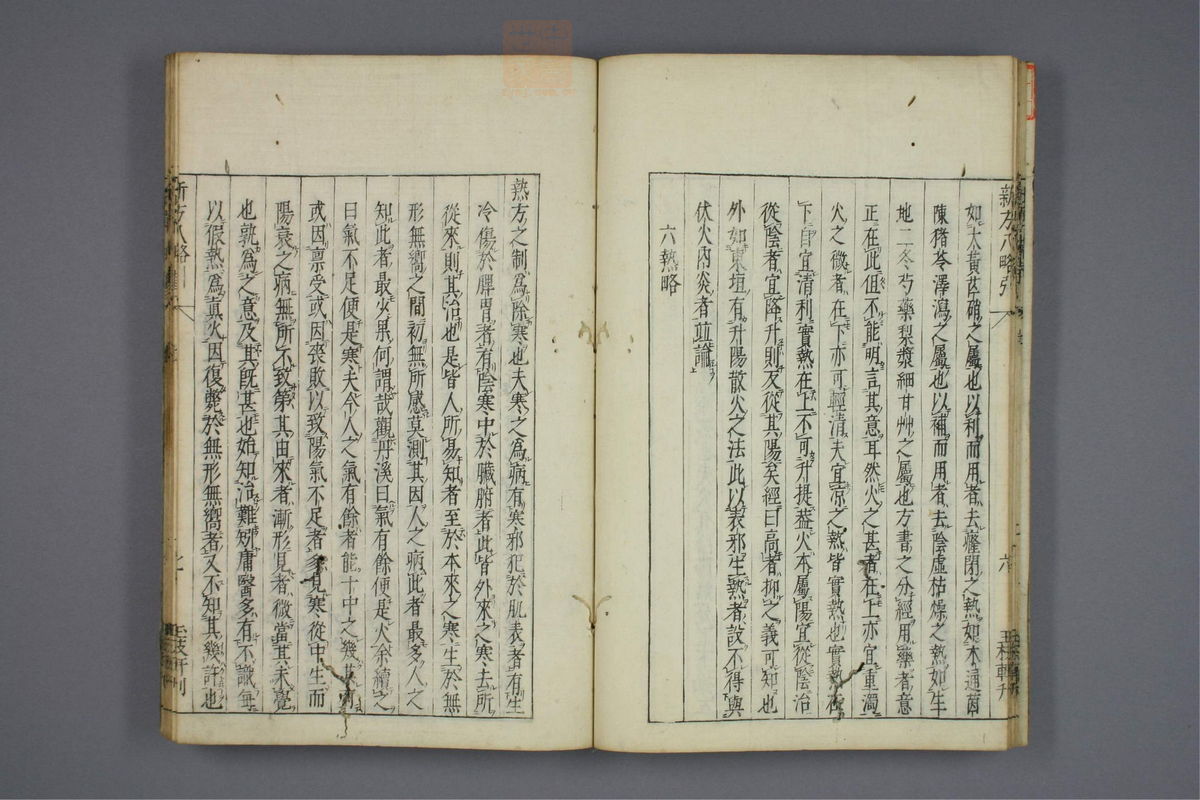 新方八略引
如大黃芒硝之屬也以利而用者去癃閉之熱如木通茵
陳猪苓澤瀉之屬也以補而用者去陰虛枯燥之熱如生
地二冬芍藥梨漿細甘艸之屬也方書之分經用藥者意
正在此但不能明言其意耳然火之甚者在上亦宜重濁
火之微者在下亦可輕清夫宜凉之熱皆實熱也實熱在
下自宜清利實熱在上不可升提葢火本屬陽宜從陰治
從陰者宜降升則反從其陽矣經曰高者抑之義可知也
外如東垣有升陽散火之法此以表邪生熱者設不得與
伏火内炎者並論
六熱略
熱方之制爲除寒也夫寒之爲病有寒邪犯於肌表者有生
冷傷於脾胃者有陰寒中於臟腑者此皆外來之寒去所
從來則其治也是皆人所易知者至於本來之寒生於無
形無嚮之間初無所感莫測其因人之病此者最多人之
知此者最少果何謂哉觀丹溪曰氣有餘便是火余續之
曰氣不足便是寒夫今人之氣有餘者能十中之幾其
或因禀受或因喪敗以致陽氣不足者多見寒從中生而
陽衰之病無所不致第其由來者漸形見者微當其未覺
也孰爲之意及其既甚也始知治難矧庸醫多有不識每
以假熱爲眞火因復斃於無形無嚮者又不知其幾許也
新方八略